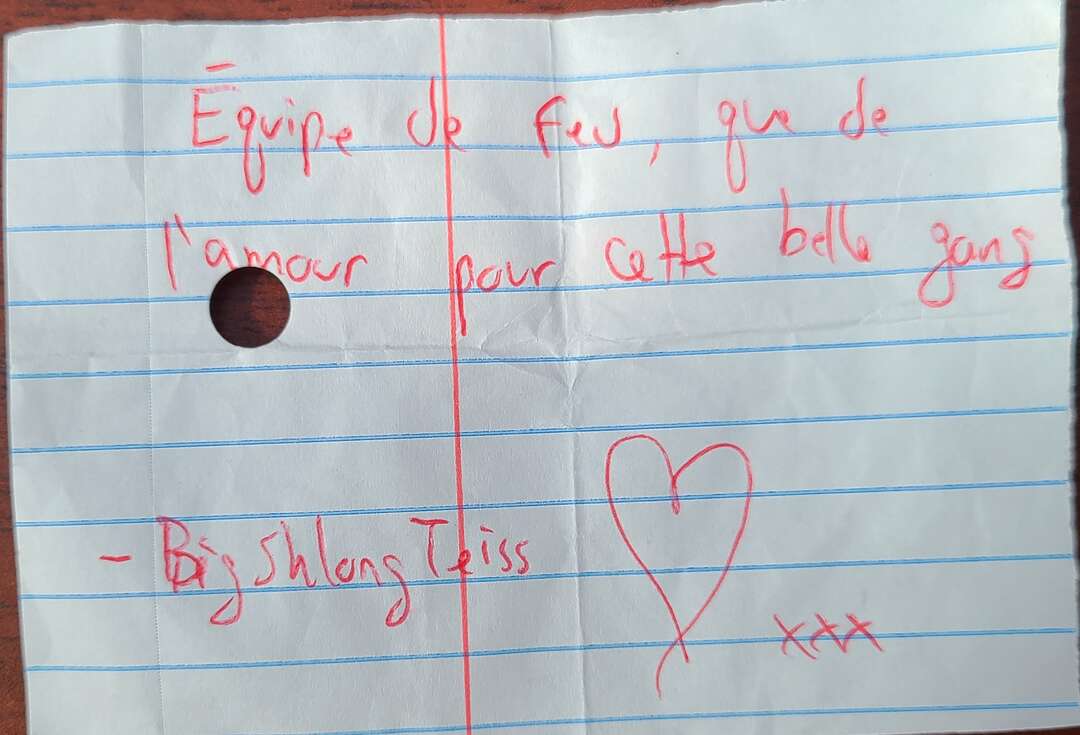 Équipe de feu, que de
l'amour pour cette belle gang
- Big Shlong Teiss
xxx